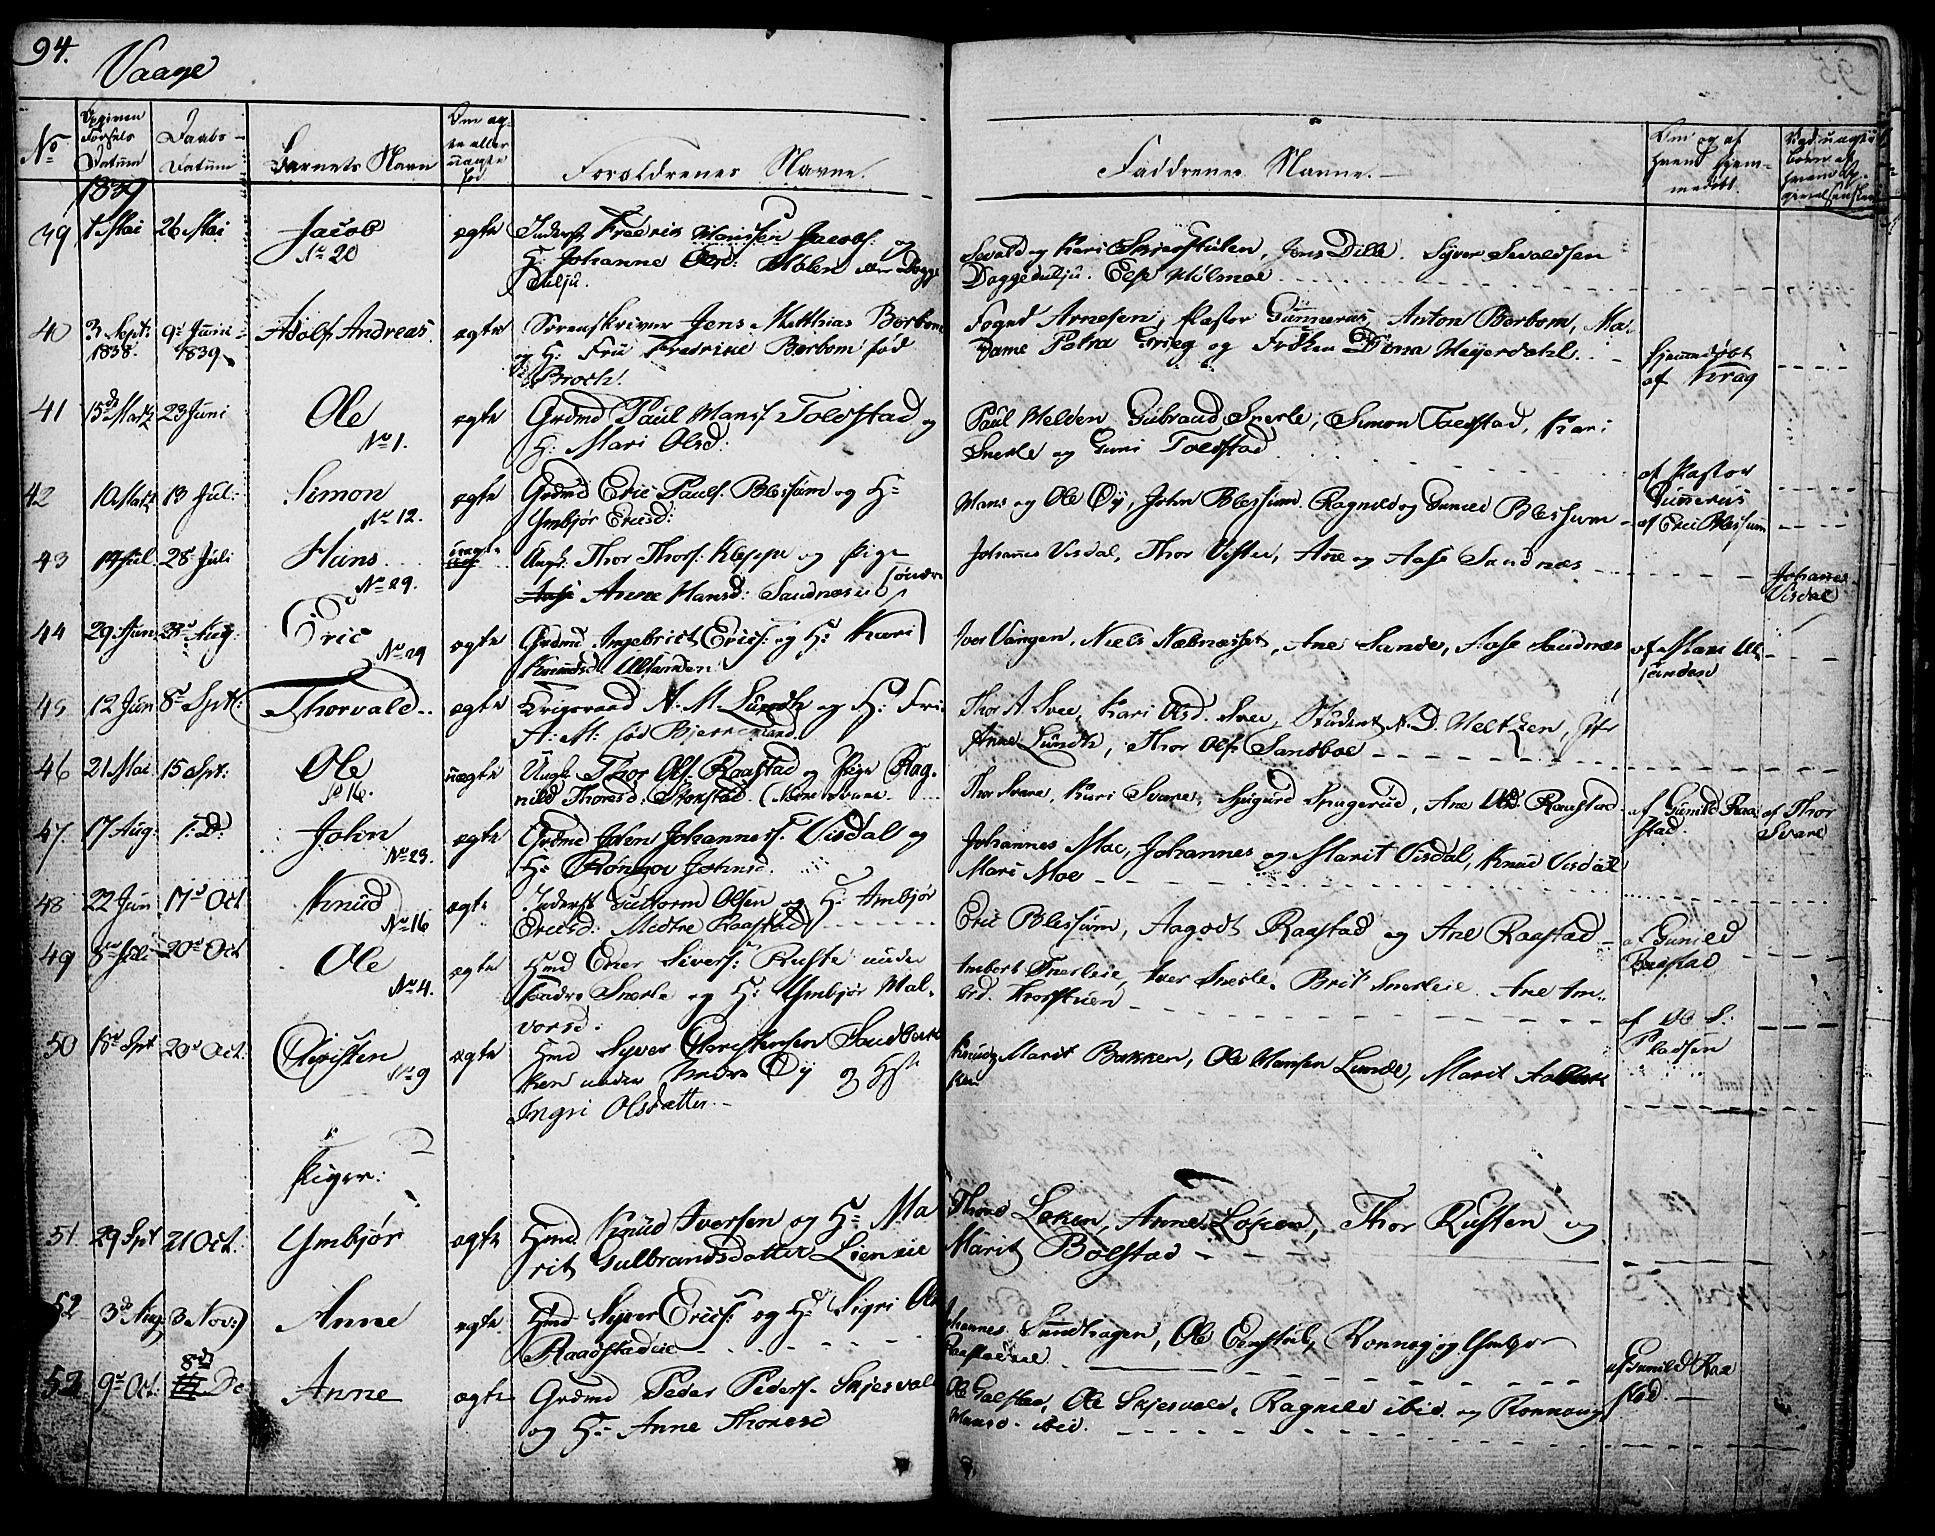 94.
Vaage
No
Opgiven
Fødsels
Datum
Daabs-
Datum
Barnets Navn
Om æg-
te eller
uægte
fød.
Forældrenes Navne.
Faddrenes Navne.
Om og af
hvem hjem-
medøbt.
Ved uægte
børn af
hvem
1839
39 1 Mai 26 Mai Jacob ægte Fredric Hansen Jacobs: og
No 20 H: Johanne Olsd: Holen
Sevald og Kari Skjerstulen, Jens Dille. Syver Sevaldsen
Daggedulju. Else Holmoe
40 3 Septr 9de Juni Adolf Andreas. ægte Sorenskriver Jens Matthias Borbom
1838. 1839. og H: Fru Fredrike Borbom fød
Broch.
Foged Arnesen, Pastor Gunnerus, Anton Borbom, Ma-
dame Petra Grieg og Frøken Dina Meyerdahl.
hjemmedøbt
af Krag
41 15de Martz 23 Juni Ole ægte Grdmd Paul Hans: Toldstad og
No 1. H: Mari Olsd:
Paul Melden Gubrand Snerle, Simon Toldstad, Kari
Snerle og Guri Toldstad
42 10 Martz 13 Jul: Simon ægte Grdmd Eric Pauls. Blessum og H:
No 12. Ymbjør Ericsd:
Hans og Ole Øy, John Blessum. Ragnild og Gunild Blessum
af Pastor
Gunnerus
af Eric Blessum
43 14 Jul. 28 Juli Hans uægte Ungk. Thor Thors: Kleppe og Pige
No 29. Anne Hansd: Sandnæs
Johannes Visdal, Thor Viste, Ane og Aase Sandnæs
Johannes
Visdal
44 29 Jun: 28de Aug: Eric ægte Grdmd Ingebrict Erics: og H: Kari
No 29 Knudsd. Ullsanden
Iver Vangen, Niels Næbnæsset, Ane Sande, Aase Sandnæs
af Mari Ul-
sanden
45 12 Jun 8de Sept: Thorvald. ægte Krigsraad A. M. Lundh og H: Fru
A: M: fød Bjerregaard.
Thor A. Svee, Kari Olsd. Svee, Student N. D. Meltzen, Jfr
Anne Lundh, Thor Ols. Sandboe
46 21 Mai 15 Spt: Ole uægte Ungk. Thor Ols. Raastad og Pige Rag-
No 16. nild Thoresd: Stokstad.
Thor Svare, Kari Svare, Sjugurd Sprugerud, Ane Olsd. Raastad
af Gunild Raa-
stad.
af Thor
Svare
47. 17 Aug: s: D: John ægte Grdmd John Johannes: Visdal og
No 23. H: Rønnov Johnsd.
Johannes Moe, Johannes og Marit Visdal, Knud Visdal
Mari Moe
48 22 Jun 17de Oct Knud ægte Inderst Guttorm Olsen og H: Ambjør
No 16 Ericsd: Medtre Raastad
Eric Blessum, Aagodt Raastad og Ane Raastad
af Gunild
Raastad
49 8de Juli 20de Oct Ole ægte Hmd Ener Sivers: Ruste under
No 4. Snerle og H: Ymbjør Hal-
vorsd:
Ambort Snerleie, Iver Snerle. Brit Snerleie. Ane Am-
brd. Thorstuen
af Ole S:
Pladsen
50 18de Spt 20de Oct. Christen ægte Hmd Syver Christensen Sandbak-
No 9 ken under Nedre Øy og Hst
Ingri Olsdatter.
Knud og Marit Bakken, Ole Hansen Lunde, Marit Aabak-
ken
Piger:
51. 29 Spt 21 Oct. Ymbjør ægte Hmd Knud Iversen og H: Ma-
rit Gulbrandsdatter Lienseie
Thore Løken, Anne Løken, Thor Rusten og
Marit Bolstad
52 3de Aug 3 Nov: Anne ægte Hmd Syver Erics: og H: Sigri Ols
Raadstadeie
Johannes Sundhagen, Ole Engstul, Ronnog og Ymbjør
Raastadeie
8de
52 9de Oct: De Anne ægte Grdmd Peder Peders. Skjesvold
og H: Anne Thoresd
Ole Galstad, Ole Skjesvold, Ragnild ibid. og Ronnoug
Hansd. ibid.
af Gunild Raa-
stad.